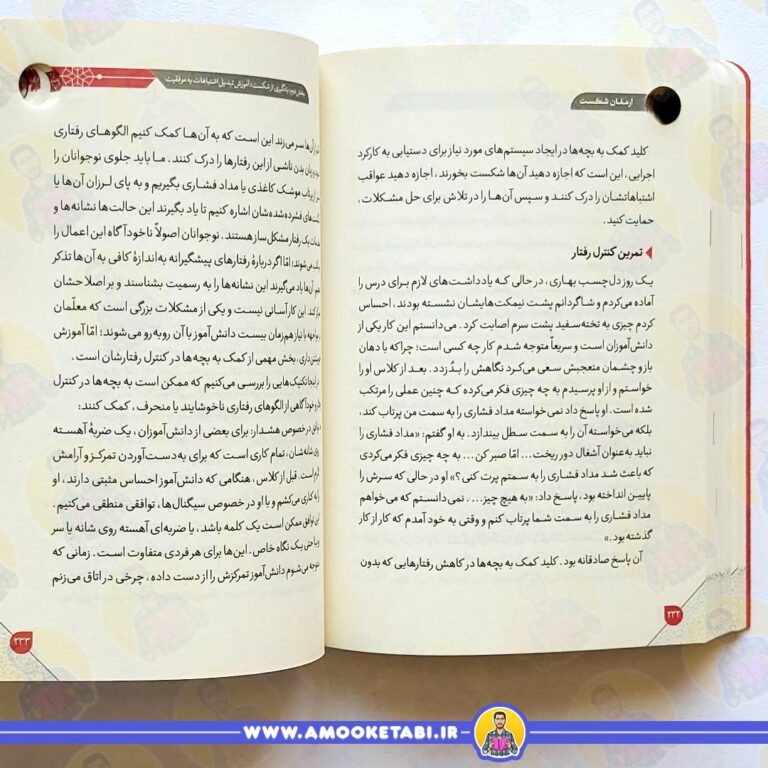 ارمغان شکست
کلید کمک به بچه‌ها در ایجاد سیستم‌های مورد نیاز برای دستیابی به کارکرد
اجرایی، این است که اجازه دهید آن‌ها شکست بخورند، اجازه دهید عواقب
اشتباهاتشان را درک کنند و سپس آن‌ها را در تلاش برای حل مشکلات،
حمایت کنید.
تمرین کنترل رفتار
یک روز دل‌چسب بهاری، در حالی که یادداشت‌های لازم برای درس را
آماده می‌کردم و شاگردانم پشت نیمکت‌هایشان نشسته بودند، احساس
کردم چیزی به تخته‌سفید پشت سرم اصابت کرد. می‌دانستم این کار یکی از
دانش‌آموزان است و سریعاً متوجه شدم کار چه کسی است؛ چراکه با دهان
باز و چشمان متعجبش سعی می‌کرد نگاهش را بدُزدد. بعد از کلاس او را
خواستم و از او پرسیدم به چه چیزی فکر می‌کرده که چنین عملی را مرتکب
شده است. او پاسخ داد نمی‌خواسته مداد فشاری را به سمت من پرتاب کند،
بلکه می‌خواسته آن را به سمت سطل بیندازد. به او گفتم: «مداد فشاری را
نباید به‌عنوان آشغال دور ریخت... امّا صبر کن... به چه چیزی فکر می‌کردی
که باعث شد مداد فشاری را به سمتم پرت کنی؟» او در حالی که سرش را
پایین انداخته بود، پاسخ داد: «به هیچ چیز.... نمی‌دانستم که می‌خواهم
مداد فشاری را به سمت شما پرتاب کنم و وقتی به خود آمدم که کار از کار
گذشته بود.»
آن پاسخ صادقانه بود. کلید کمک به بچه‌ها در کاهش رفتارهایی که بدون
۲۳۲
بخش دوم: یادگیری از شکست؛ آموزش تبدیل اشتباهات به موفقیت
آن‌ها سر می‌زند این است که به آن‌ها کمک کنیم الگوهای رفتاری
و زبان بدن ناشی از این رفتارها را درک کنند. ما باید جلوی نوجوانان را
پرتاب موشک کاغذی یا مداد فشاری بگیریم و به پای لرزان آن‌ها یا
فشرده‌شده‌شان اشاره کنیم تا یاد بگیرند این حالت‌ها نشانه‌ها و
یک رفتار مشکل‌ساز هستند. نوجوانان اصولاً ناخودآگاه این اعمال را
می‌شوند؛ امّا اگر دربارهٔ رفتارهای پیشگیرانه به‌اندازهٔ کافی به آن‌ها تذکر
آن‌ها یاد می‌گیرند این نشانه‌ها را به رسمیت بشناسند و بر اصلاحشان
کنند. این کار آسانی نیست و یکی از مشکلات بزرگی است که معلّمان
مواجهه با نیاز هم‌زمان بیست دانش‌آموز با آن روبه‌رو می‌شوند؛ امّا آموزش
خویشتن‌داری، بخش مهمی از کمک به بچه‌ها در کنترل رفتارشان است.
در اینجا تکنیک‌هایی را بررسی می‌کنیم که ممکن است به بچه‌ها در کنترل
و خودآگاهی از الگوهای رفتاری ناخوشایند یا منحرف، کمک کنند:
توافق در خصوص هشدار: برای بعضی از دانش‌آموزان، یک ضربهٔ آهسته
شانه‌شان، تمام کاری است که برای به‌دست‌آوردن تمرکز و آرامش
لازم است. قبل از کلاس، هنگامی که دانش‌آموز احساس مثبتی دارند، او
را به کناری می‌کشم و با او در خصوص سیگنال‌ها، توافقی منطقی می‌کنیم.
این توافق ممکن است یک کلمه باشد، یا ضربه‌ای آهسته روی شانه یا سر
و یا حتی یک نگاه خاص. این‌ها برای هر فردی متفاوت است. زمانی که
متوجه می‌شوم دانش‌آموز تمرکزش را از دست داده، چرخی در اتاق می‌زنم
۲۳۳
WWW.AMOOKETABI.IR